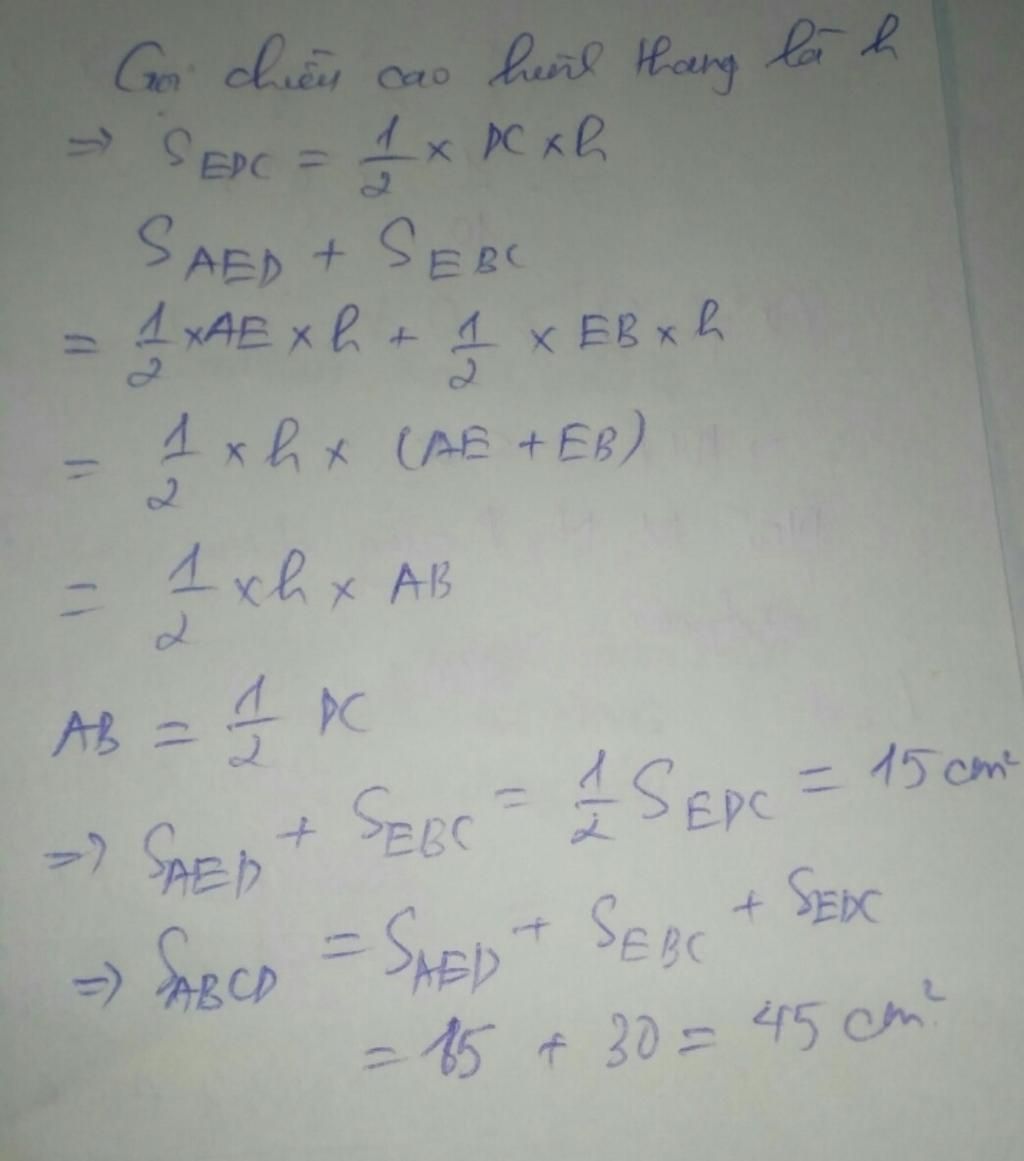 Gọi chiều cao hình thang là h
=> S EDC = 1/2 x DC x h
S AED + S EBC
= 1/2 x AE x h + 1/2 x EB x h
= 1/2 x h x (AE + EB)
= 1/2 x h x AB
AB = 1/2 DC
=> S AED + S EBC = 1/2 S EDC = 15 cm²
=> S ABCD = S AED + S EBC + S EDC
= 15 + 30 = 45 cm²